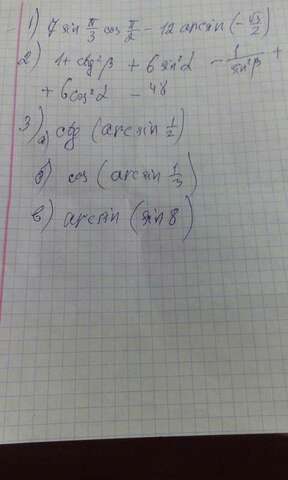 1) 7 sin π/3 cos π/2 - 12 arcsin (-√3/2)
2) 1 + ctg²β + 6 sin²α - 1/sin²β +
+ 6cos²α - 48
3) a) ctg (arcsin 1/2)
б) cos (arcsin 1/3)
в) arcsin (sin 8)